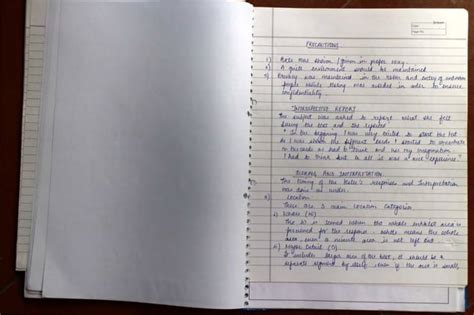 PRECAUTIONS
1) Card was shown / given in proper way.
2) A quite environment should be maintained
3) Privacy was maintained in the room and entry of unknown
people while testing was avoided in order to ensure
confidentiality.
INTROSPECTIVE REPORT
The subject was asked to report what she felt
during the test and she reported
" In the beginning I was very excited to start the test
As I was shown the different cards I started to concentrate
on the cards as had to think and use my imagination.
I had to think but in all it was a nice "experience"
SCORING AND INTERPRETATION
The scoring of the responses and Interpretation
was done as under
a) Location
There are 3 main location categories
i) Whole (W)
The W is scored when the whole inkblot area is
perceived for the response. Whole means the whole
area, even a minute area is not left out
ii) Major Detail (D)
It includes larger area of the blot, it should be a
separate segment by itself even if the area is small,